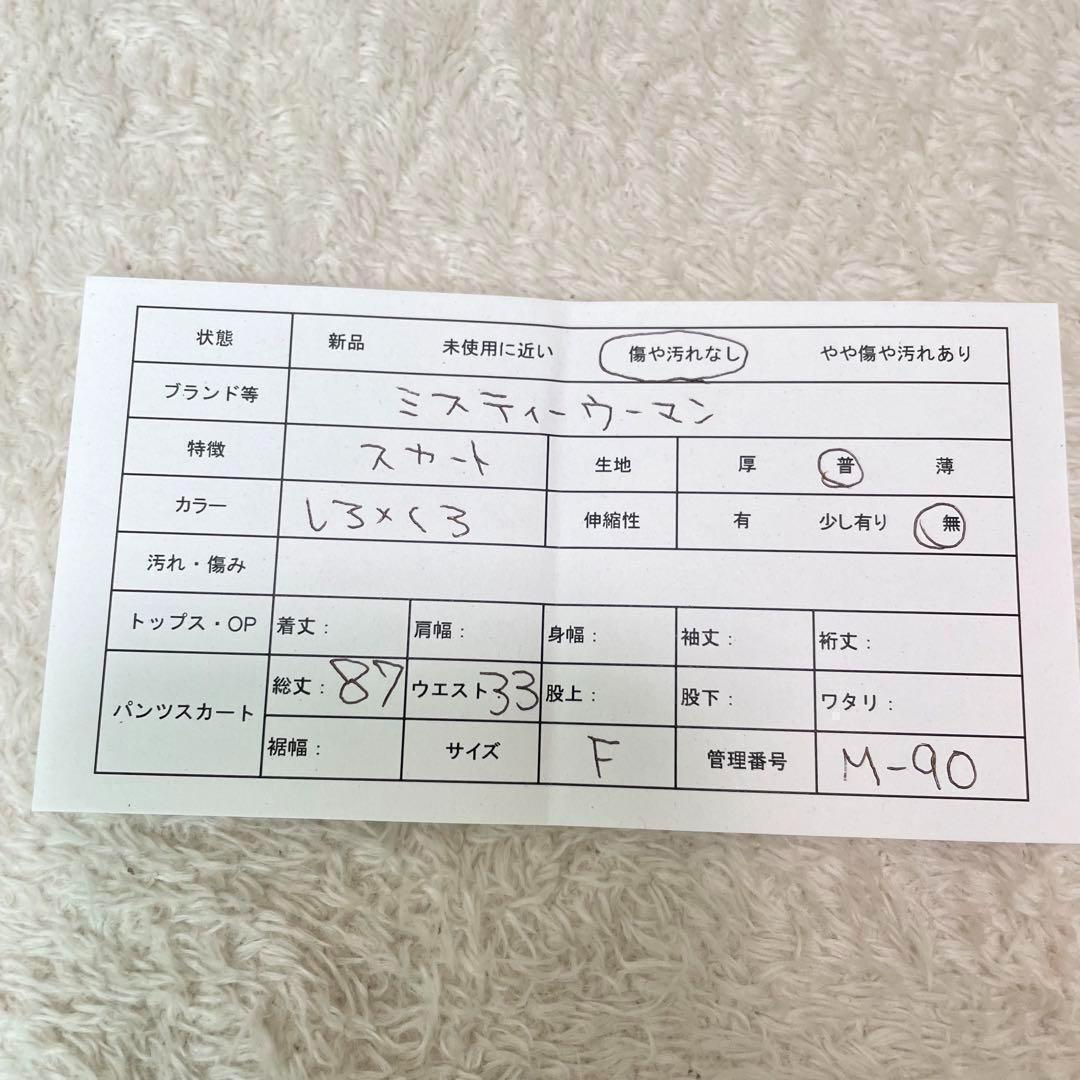 状態 新品 未使用に近い 傷や汚れなし やや傷や汚れあり
ブランド等 ミスティーウーマン
特徴 スカート 生地 厚 普 薄
カラー しろ×くろ 伸縮性 有 少し有り 無
汚れ・傷み
トップス・OP 着丈: 肩幅: 身幅: 袖丈: 裄丈:
パンツスカート 総丈:87 ウエスト:33 股上: 股下: ワタリ:
裾幅: サイズ F 管理番号 M-90